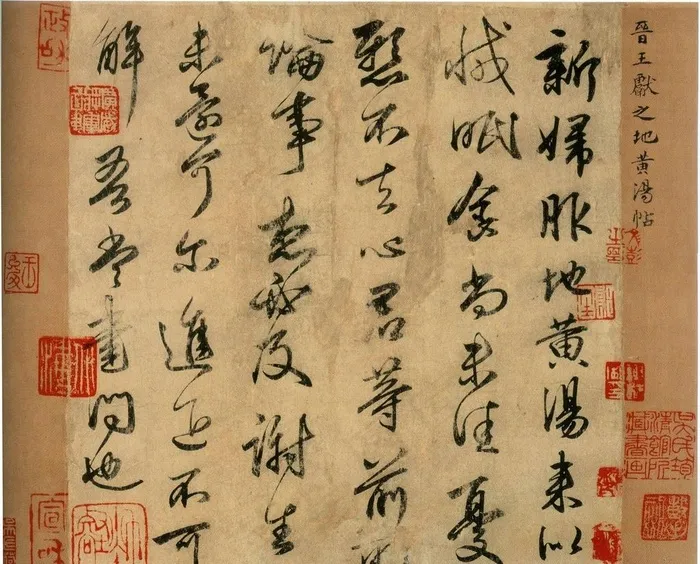 晉王獻之地黃湯帖
新婦服地黃湯來似
減眠食尚未佳憂
懸不去心君等前
論事想必及謝生
未還可爾進退不可
解吾當書問也